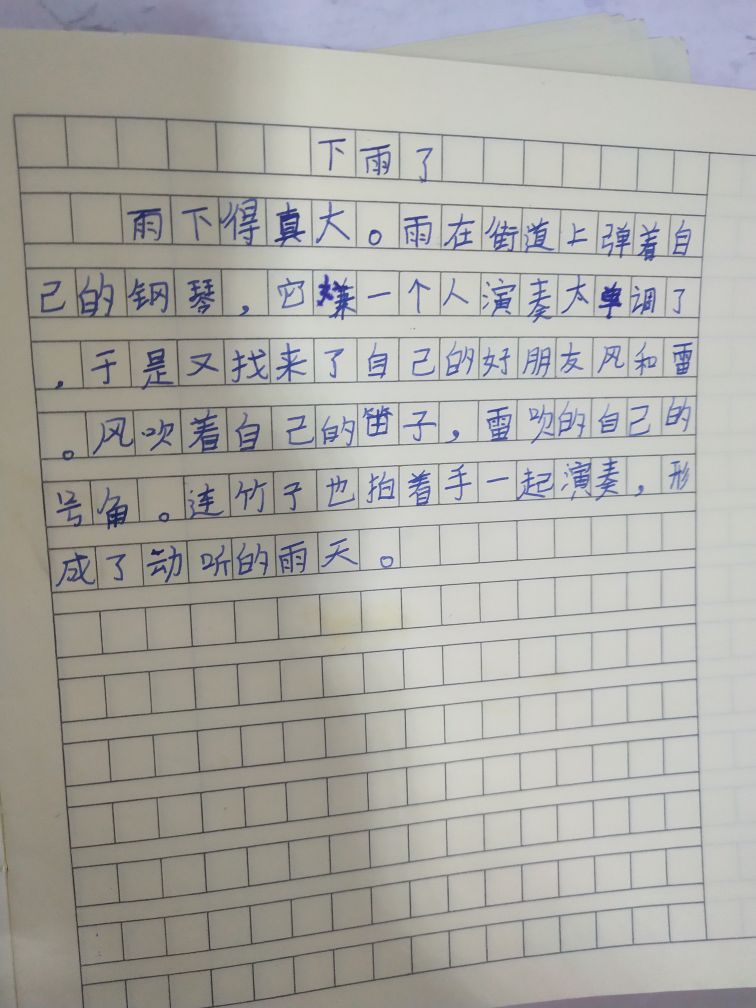 下雨了
雨下得真大。雨在街道上弹着自
己的钢琴，它嫌一个人演奏太单调了
，于是又找来了自己的好朋友风和雷
。风吹着自己的笛子，雷吹的自己的
号角。连竹子也拍着手一起演奏，形
成了动听的雨天。